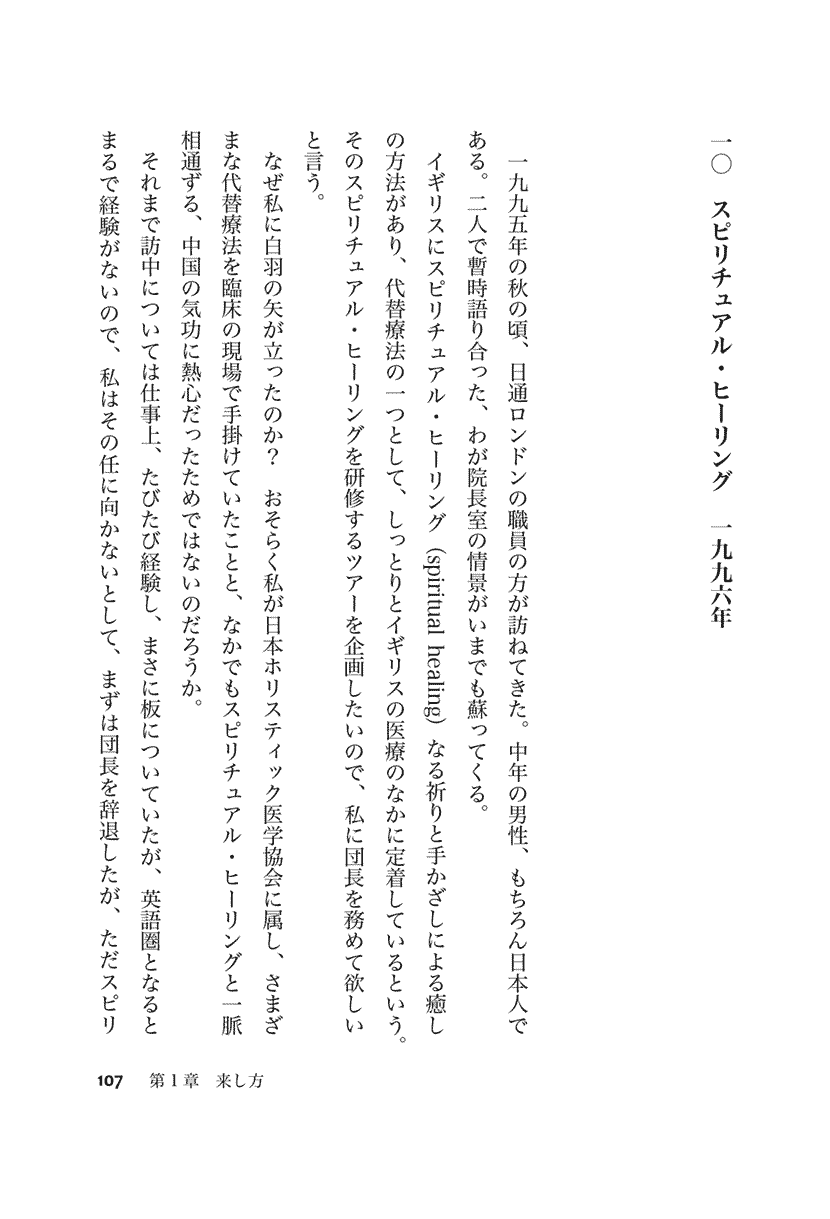 一〇　スピリチュアル・ヒーリング　一九九六年
一九九五年の秋の頃、日通ロンドンの職員の方が訪ねてきた。中年の男性、もちろん日本人で
ある。二人で暫時語り合った、わが院長室の情景がいまでも蘇ってくる。
イギリスにスピリチュアル・ヒーリング（spiritual healing）なる祈りと手かざしによる癒し
の方法があり、代替療法の一つとして、しっとりとイギリスの医療のなかに定着しているという。
そのスピリチュアル・ヒーリングを研修するツアーを企画したいので、私に団長を務めて欲しい
と言う。
なぜ私に白羽の矢が立ったのか？　おそらく私が日本ホリスティック医学協会に属し、さまざ
まな代替療法を臨床の現場で手掛けていたことと、なかでもスピリチュアル・ヒーリングと一脈
相通ずる、中国の気功に熱心だったためではないのだろうか。
それまで訪中については仕事上、たびたび経験し、まさに板についていたが、英語圏となると
まるで経験がないので、私はその任に向かないとして、まずは団長を辞退したが、ただスピリ
107　第1章　来し方